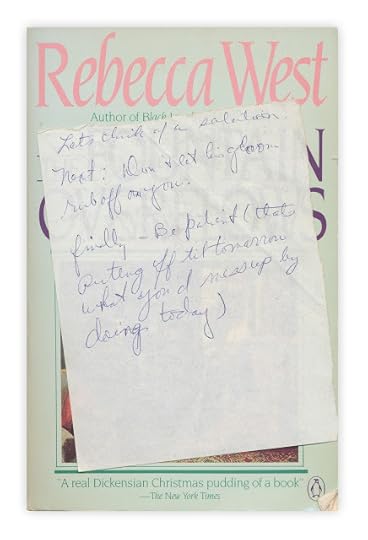 Rebecca West
Author of Black
IN
O S
Lets think of a solution.
Next: Don't let his gloom
rub off on you.
finally — Be patient (thats
puting off til tomorrow
what you'd mess up by
doing today)
"A real Dickensian Christmas pudding of a book"
—The New York Times